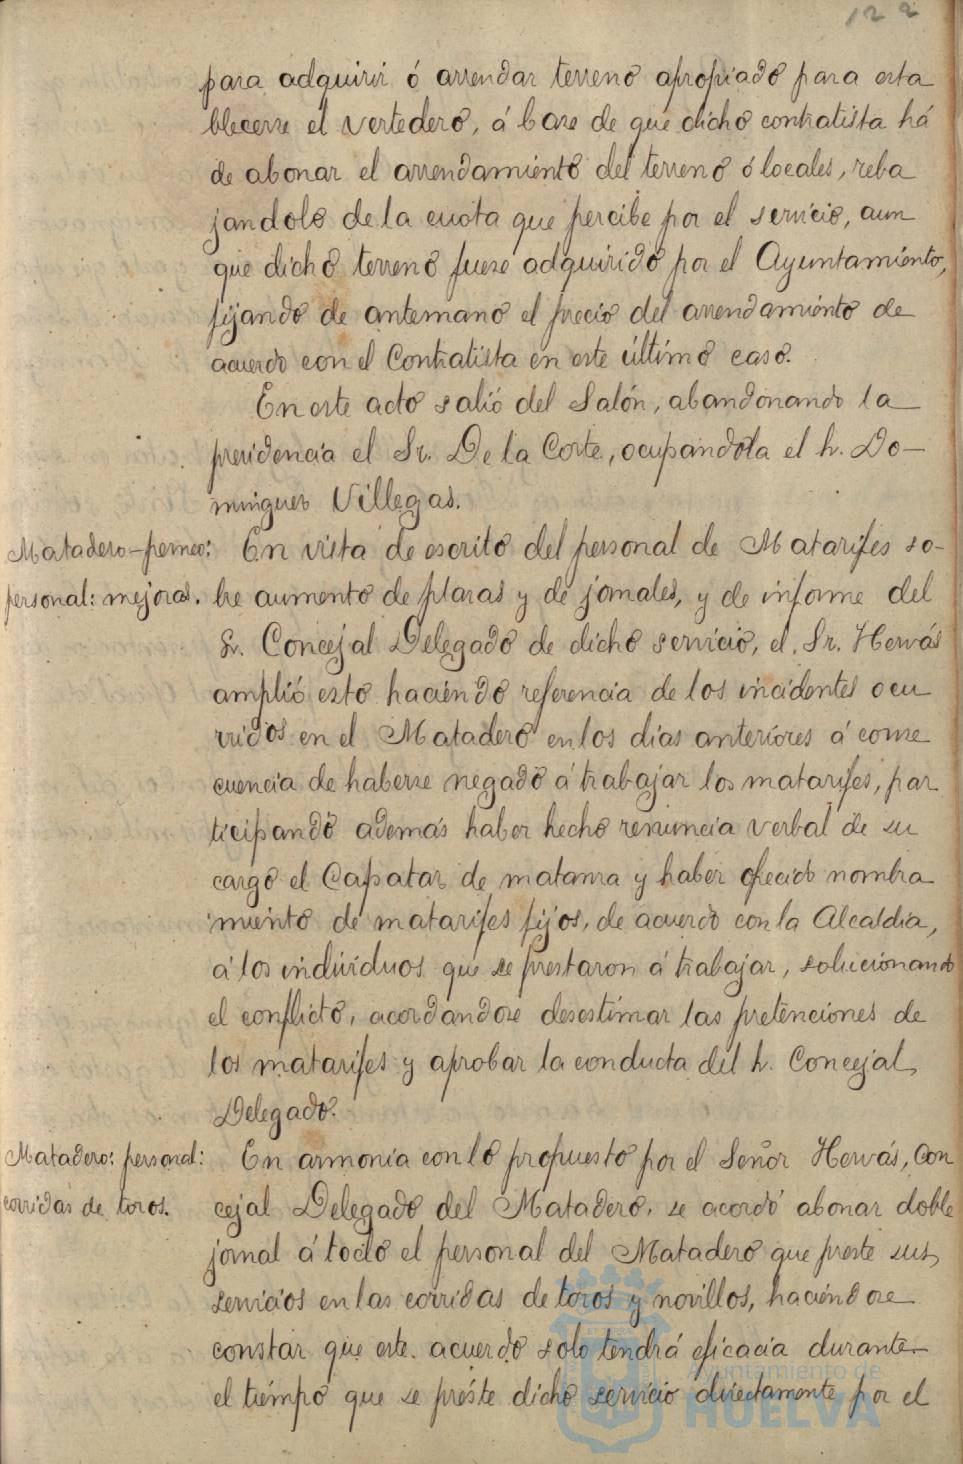 122
para adquirir ó arrendar terreno apropiado para esta
blecerse el vertedero, á base de que dicho contratista há
de abonar el arrendamiento del terreno ó locales, reba
jandolo de la cuota que percibe por el servicio, aun
que dicho terreno fuese adquirido por el Ayuntamiento,
fijando de antemano el precio del arrendamiento de
acuerdo con el Contratista en este último caso.
En este acto salió del Salón, abandonando la
presidencia el Sr. De la Corte, ocupandola el Sr. Do-
minguez Villegas.
Matadero-perneo: En vista de escrito del personal de Matarifes so-
personal: mejoras. bre aumento de plazas y de jornales, y de informe del
Sr. Concejal Delegado de dicho servicio, el Sr. Hervás
amplió esto haciendo referencia de los incidentes ocu
rridos en el Matadero en los dias anteriores á conse
cuencia de haberse negado á trabajar los matarifes, par
ticipando además haber hecho renuncia verbal de su
cargo el Capataz de matanza y haber ofrecido nombra
miento de matarifes fijos, de acuerdo con la Alcaldia,
á los individuos que se prestaron á trabajar, solucionando
el conflicto, acordandose desestimar las pretenciones de
los matarifes y aprobar la conducta del Sr. Concejal
Delegado.
Matadero: personal: En armonia con lo propuesto por el Señor Hervás, Con
corridas de toros. cejal Delegado del Matadero, se acordó abonar doble
jornal á todo el personal del Matadero que preste sus
servicios en las corridas de toros y novillos, haciendose
constar que este acuerdo solo tendrá eficacia durante
el tiempo que se préste dicho servicio directamente por el
Ayuntamiento de
HUELVA